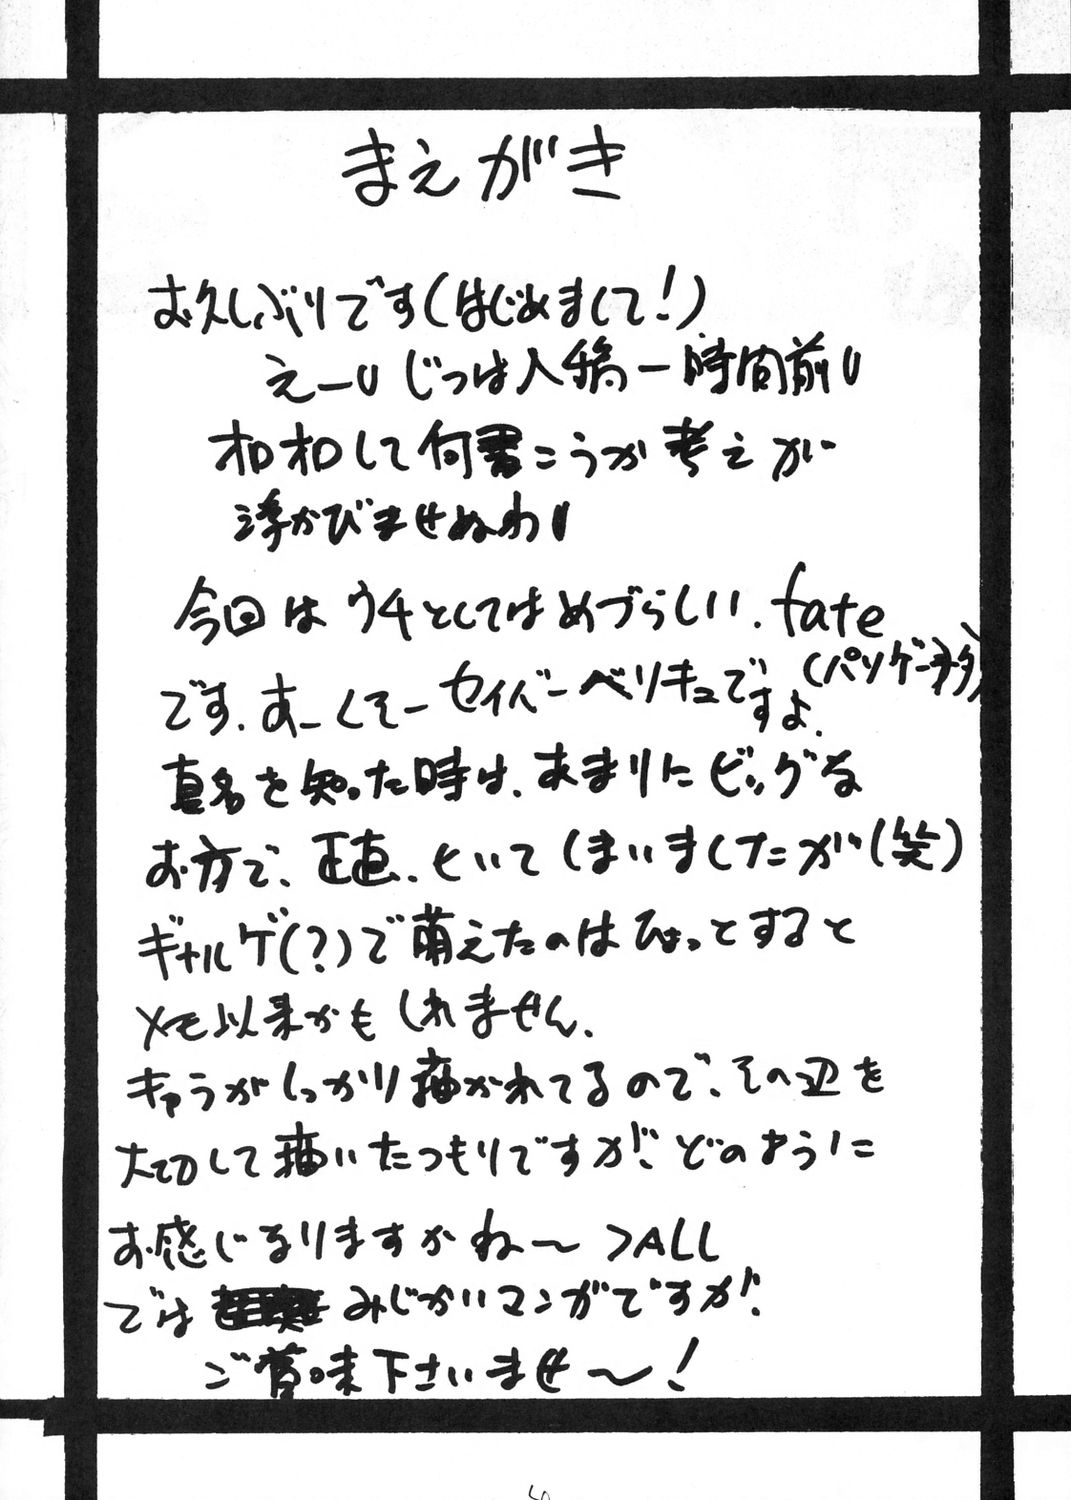 まえがき
お久しぶりです(はじめまして!)
えーU じつは入稿一時間前U
オロオロして何書こうか考えが
浮かびませぬわU
今回はウチとしてはめづらしい、fate
です。あーくそーセイバーベリキュですよ。
(パソゲーネタ)
真名を知った時は、あまりにビッグな
お方で、正直、ひいてしまいましたが(笑)
ギャルゲ(?)で萌えたのはひょっとすると
メモ以来かもしれません。
キャラがしっかり描かれてるので、その辺を
大切して描いたつもりですが、どのように
お感じなりますかね〜>ALL
では みじかいマンガですが、
ご賞味下さいませ〜!